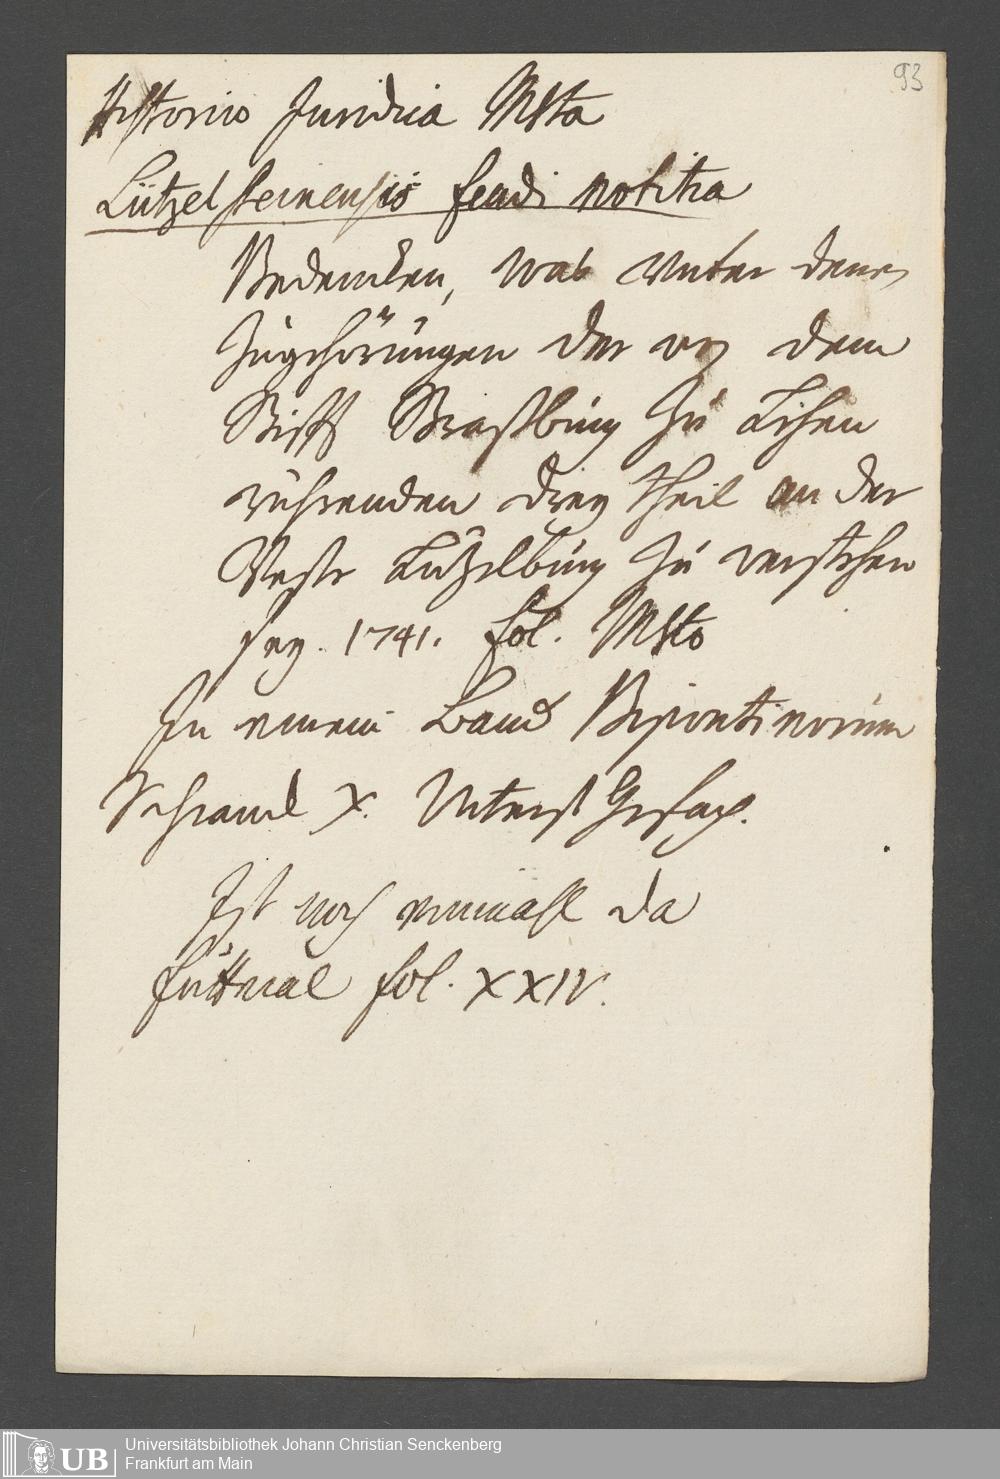 93
Historico Juridica Msta
Lützelsteinensis feudi notitia
Bedencken, was unter denen
Zugehörungen der von dem
Stifft Straßburg zu Lehen
rührenden drey theil an der
Veste Lützelburg zu verstehen
sey. 1741. fol. Msto
In einem Band Bipontinorum
Schranck X. Unterst Gefach.
Ist noch einmahl da
Futteral fol. XXIV.
Universitätsbibliothek Johann Christian Senckenberg
Frankfurt am Main
UB